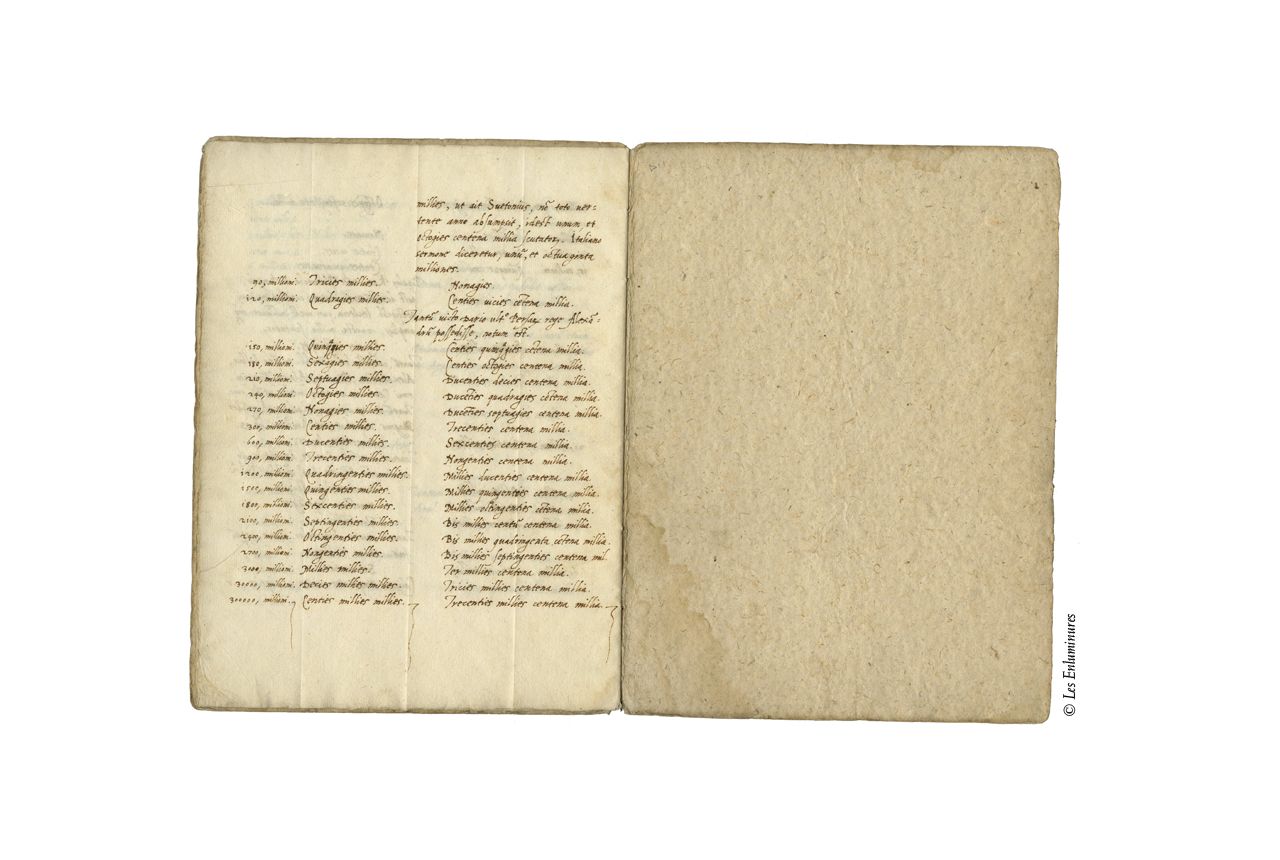 millies, ut ait Suetonius, nō toto ver=
tente anno absumpsit, idest unum, et
octogies centena millia scutator. Italiano
sermone diceretur, unū, et octuaginta
milliones.
90, millioni. Tricies millies. Nonagies.
120, millioni. Quadragies millies. Centies vicies cētena millia.
Tantū victo Dario ulto Persiae rege Alexā=
drū possedisse, notum est.
150, millioni. Quinquagies millies. Cēties quinqgies cētena millia.
180, millioni. Sexagies millies. Centies octogies centena millia.
210, millioni. Septuagies millies. Ducenties decies centena millia.
240, millioni. Octogies millies. Ducēties quadragies cētena millia.
270, millioni. Nonagies millies. Ducēties septuagies centena millia.
300, millioni. Centies millies. Trecenties centena millia.
600, millioni. Ducenties millies. Sexcenties centena millia.
900, millioni. Trecenties millies. Nongenties centena millia.
1200, millioni. Quadringenties millies. Millies ducenties centena millia
1500, millioni. Quingenties millies. Millies quingenties centena millia.
1800, millioni. Sexcenties millies. Millies octingenties cētena millia.
2100, millioni. Septingenties millies. Bis millies centū centena millia.
2400, millioni. Octingenties millies. Bis millies quadringenta cētena millia.
2700, millioni. Nongenties millies. Bis millies septingenties centena mil.
3000, millioni. Millies millies. Ter millies centena millia.
30000, millioni. Decies millies millies. Tricies millies centena millia.
300000, millioni. Centies millies millies. Trecenties millies centena millia.
© Les Enluminures